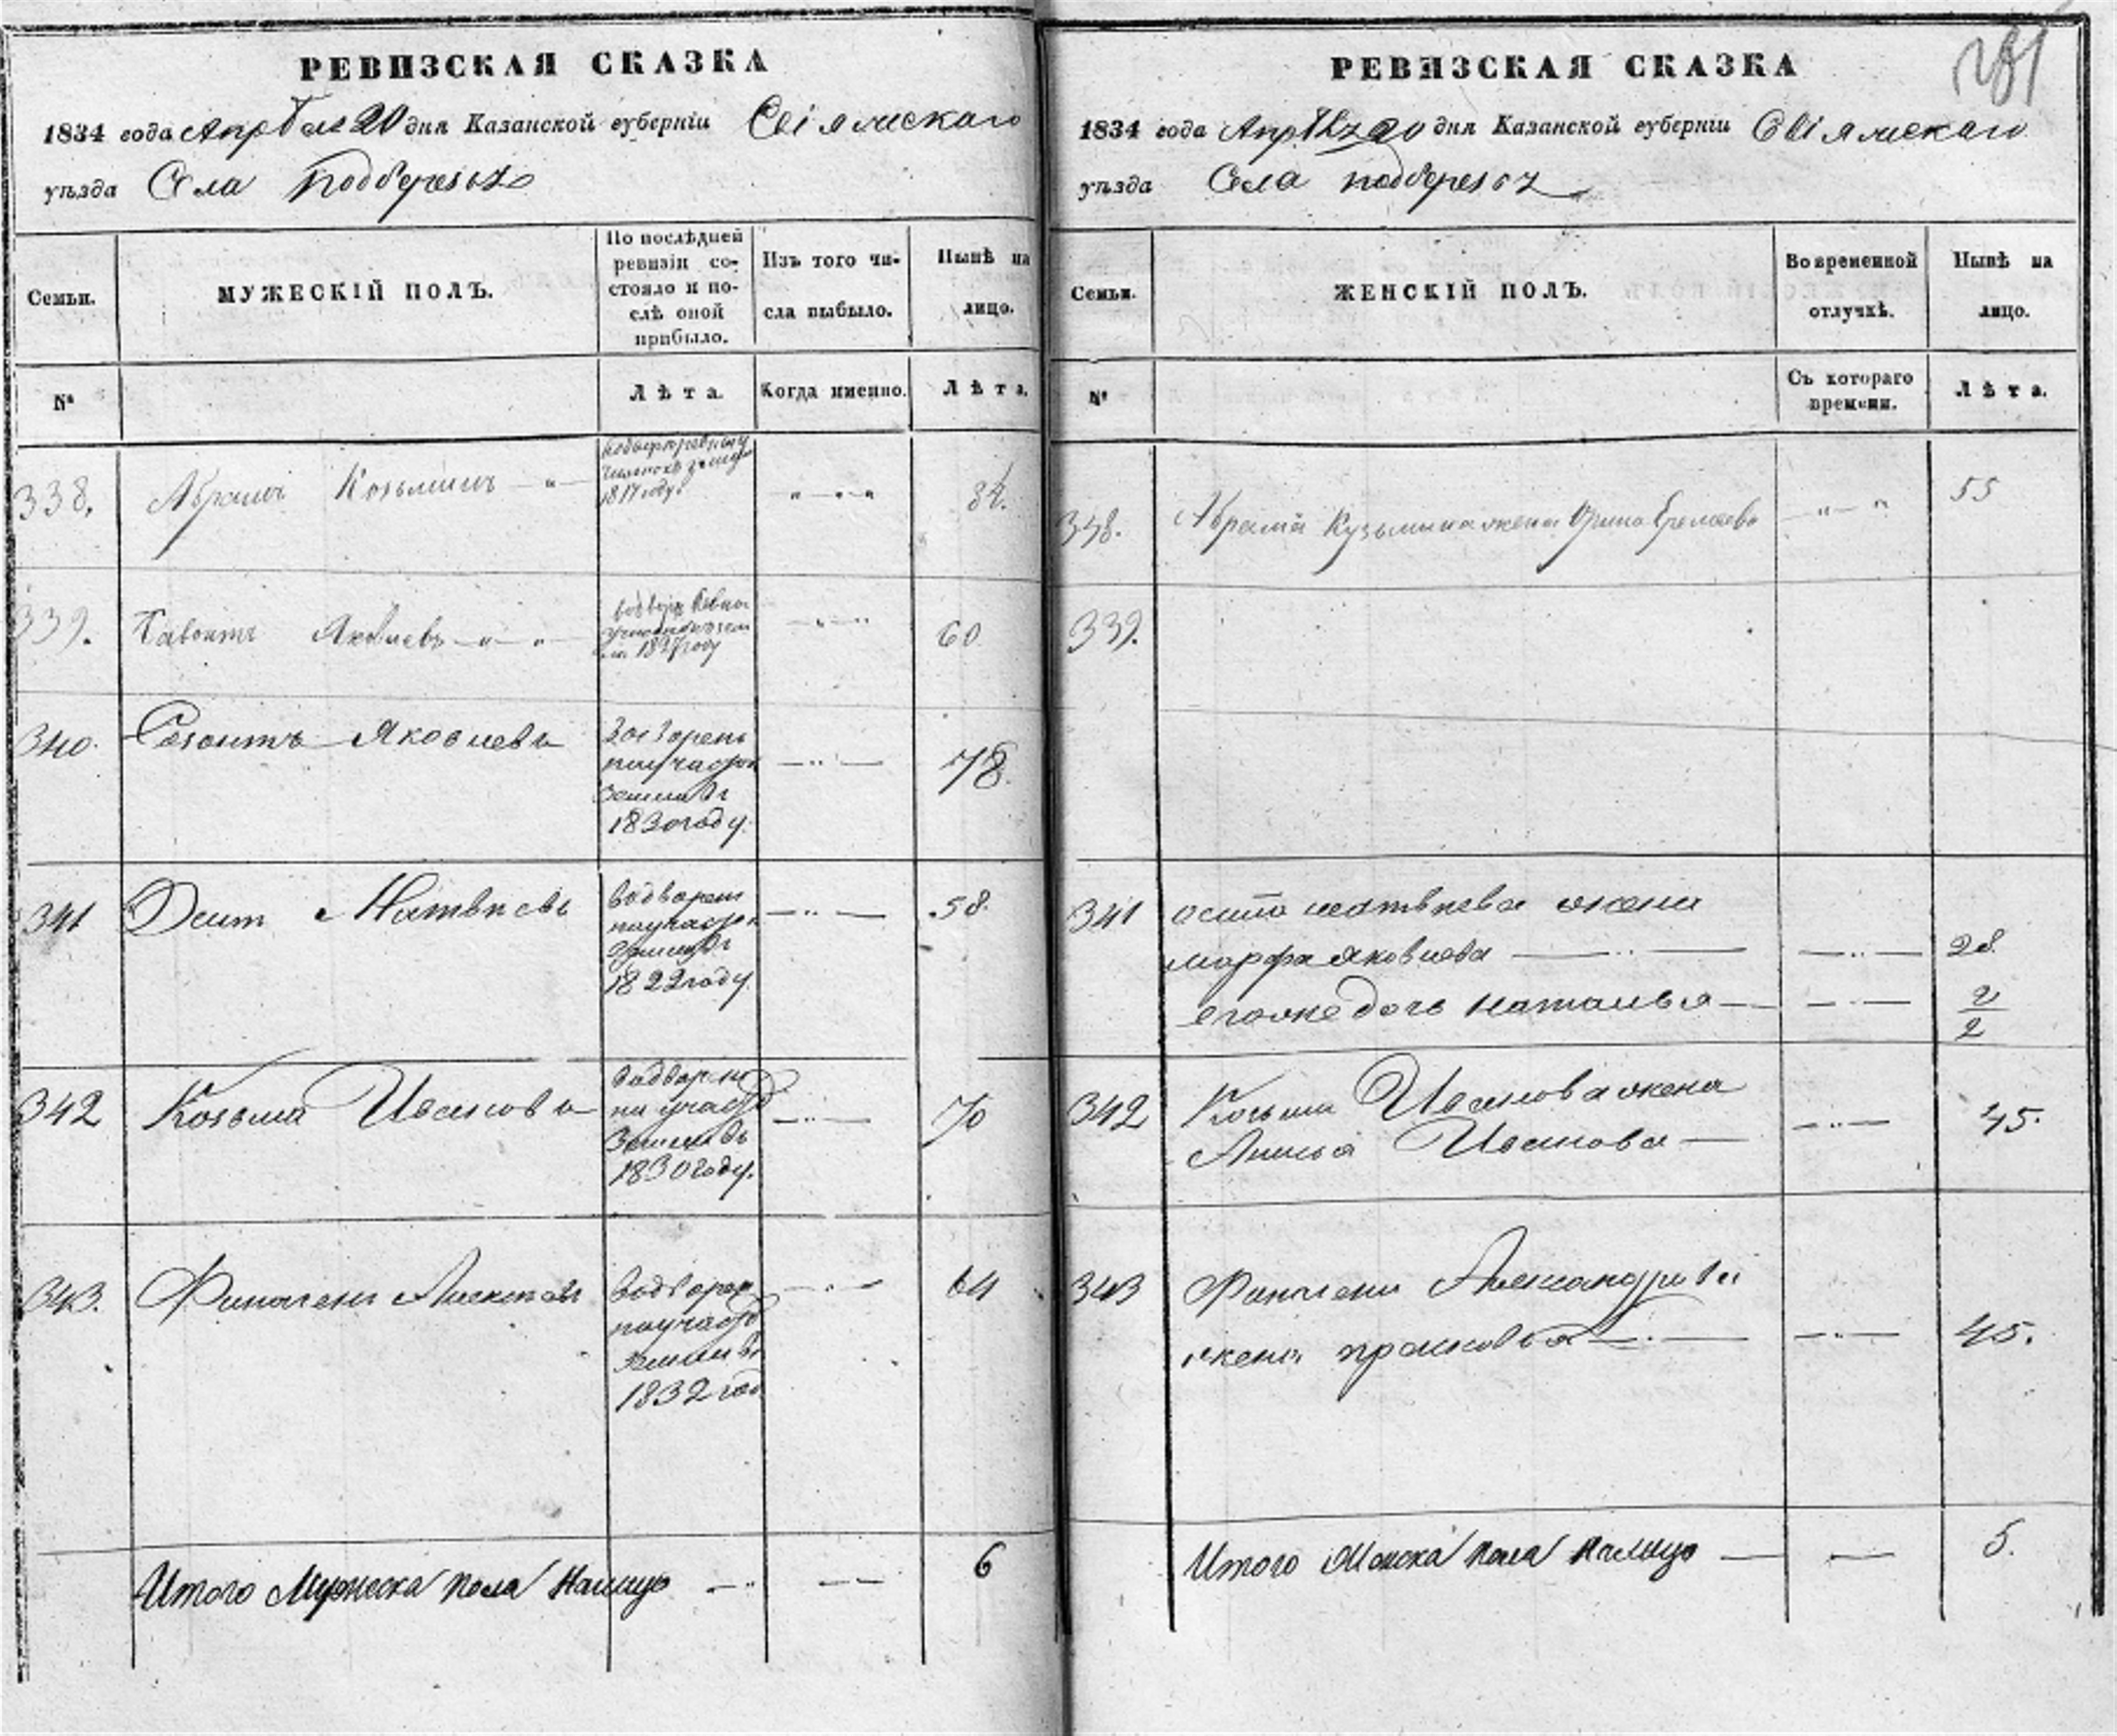 РЕВИЗСКАЯ СКАЗКА
1834 года Апреля 20 дня Казанской губерніи Свіяжскаго
уѣзда Села Подберезья
Семьи.
МУЖЕСКІЙ ПОЛЪ.
По послѣдней
ревизіи со-
стояло и по-
слѣ оной
прибыло.
Изъ того чи-
сла выбыло.
Нынѣ на
лицо.
№
Лѣта.
Когда именно.
Лѣта.
338.
Абрамъ Козьминъ
1817 году
84.
339.
Яковлевъ
году
60
340.
Яковлевъ
водворенъ
по участію
земли въ
1830 году.
78.
341
Осипъ Матвѣевъ
водворенъ
по участію
земли въ
1822 году.
58.
342
Козьма Ивановъ
водворенъ
по участію
земли въ
1830 году.
70
343.
Финогенъ
водворен
по участію
земли въ
1832 год
64
Итого Мужеска пола Налицо
6
РЕВИЗСКАЯ СКАЗКА
1834 года Апреля 20 дня Казанской губерніи Свіяжскаго
уѣзда Села подберезья
Семьи.
ЖЕНСКІЙ ПОЛЪ.
Во временной
отлучкѣ.
Нынѣ на
лицо.
№
Съ котораго
времени.
Лѣта.
338.
Абрама Кузьмина жена Орина Еремеева
55
339.
341
осипа матвѣева жена
марфа яковлева
28.
его же дочь наталья
2
2
342
Козьмы Иванова жена
Анна Иванова
45.
343
Финогена Александрова
жена прасковья
45.
Итого Женска пола налицо
5.